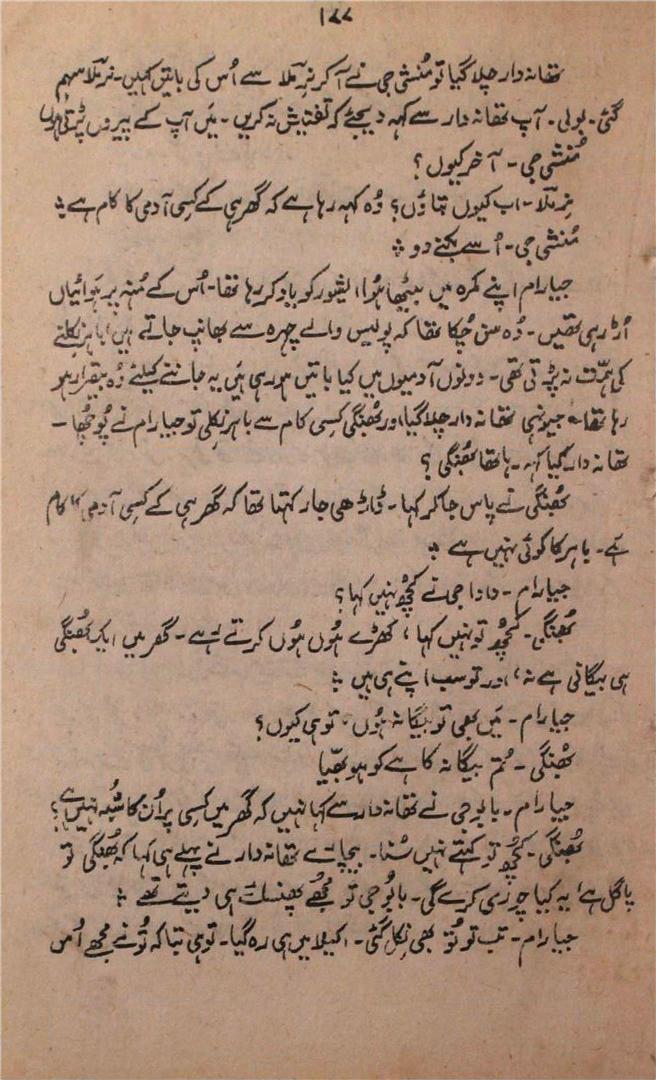 ۱۷۷
تھانہ دار چلا گیا تو مُنشی جی نے آ کر نرملا سے اُس کی باتیں کہیں۔ نرملا سہم
گئی۔ بولی۔ آپ تھانہ دار سے کہہ دیجئے کہ تفتیش نہ کریں۔ مَیں آپ کے پیروں پڑتی ہوں
مُنشی جی۔ آخر کیوں؟
نرملا۔ اب کیوں بتاؤں؟ وُہ کہہ رہا ہے کہ گھر ہی کے کسی آدمی کا کام ہے ⁘
مُنشی جی۔ اُسے بکنے دو ⁘
جیارام اپنے کمرہ میں بیٹھا ہُوا ایشور کو یاد کر رہا تھا۔ اُس کے مُنہ پر ہوائیاں
اُڑ رہی تھیں۔ وُہ سن چُکا تھا کہ پولیس والے چہرہ سے بھانپ جاتے ہیں، باہر نکلنے
کی ہمّت نہ پڑتی تھی۔ دونوں آدمیوں میں کیا باتیں ہو رہی ہَیں یہ جاننے کیلئے وُہ بیقرار ہو
رہا تھا۔ جیونہی تھانہ دار چلا گیا، اور بھُنگی کسی کام سے باہر نکلی تو جیارام نے پُوچھا۔
تھانہ دار کیا کہہ رہا تھا بھُنگی؟
بھُنگی نے پاس جا کر کہا۔ ڈاڑھی جار کہتا تھا کہ گھر ہی کے کسی آدمی کا کام
ہَے۔ باہر کا کوئی نہیں ہے ⁘
جیارام۔ دادا جی نے کچھُ نہیں کہا؟
بھُنگی۔ کچھُ تو نہیں کہا، کھڑے ہُوں ہُوں کرتے رہے۔ گھر میں ایک بھُنگی
ہی بیگانی ہے نہ، اور تو سب اپنے ہی ہیں ⁘
جیارام۔ مَیں بھی تو بیگانہ ہُوں، تو ہی کیوں؟
بھُنگی۔ تُم بیگانہ کاہے کو ہو بھیّا
جیارام۔ بابو جی نے تھانہ دار سے کہا نہیں کہ گھر میں کسی پر اُن کا شُبہ نہیں ہے؟
بھُنگی۔ کچھُ تو کہتے نہیں سُنا۔ بیچارے تھانہ دار نے پہلے ہی کہا کہ بھُنگی تو
پاگل ہے، یہ کیا چوری کرے گی۔ بابُو جی تو مُجھے پھنسائے ہی دیتے تھے ⁘
جیارام۔ تب تو تُو بھی نِکل گئی۔ اکیلا میں ہی رہ گیا۔ تو ہی بتا کہ تُو نے مجھے اُس